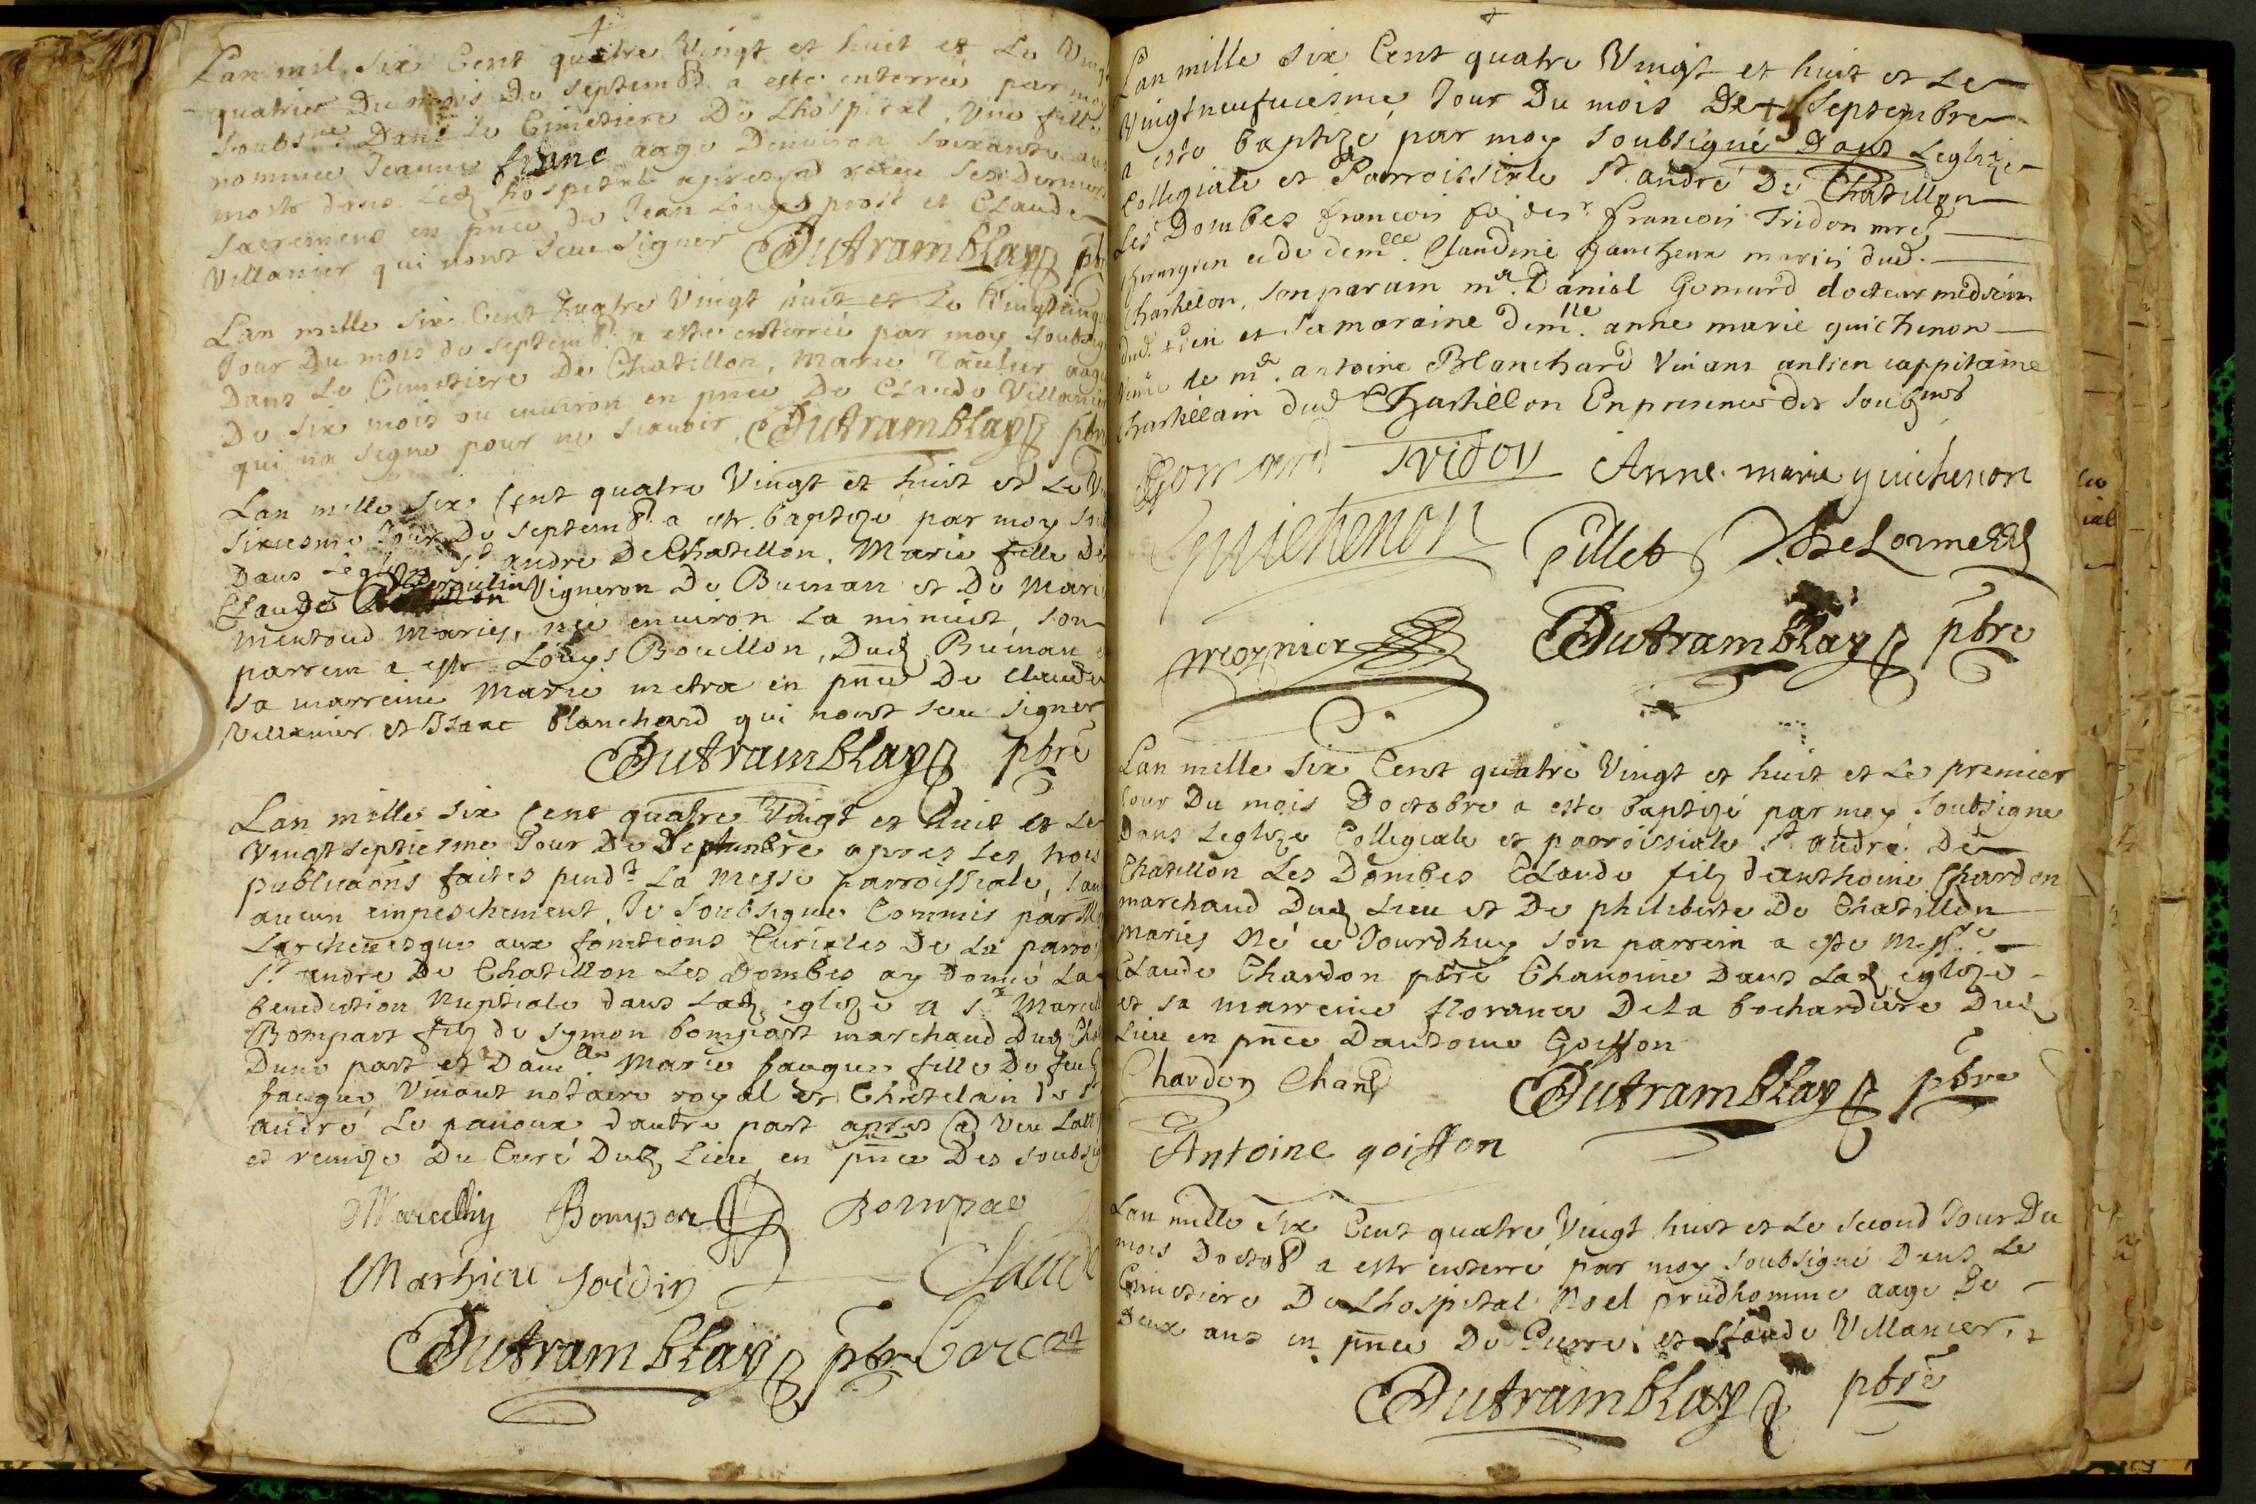 Lan mil six Cent quatre Vingt et huit et Le Vingt
quatries Du mois De septemb. a este enterrée par moy
Soubs.né Dans Le Cimetiere De Lhospital, Une fille
nommée Jeanne franc aage Denviron soixante ans
morte dans Led hospital apres avoir receu Ses Derniers
sacremens en pnce de Jean Longs prost et Claude
Villanier qui nont sceu signer Dutramblay pbr
Lan mille six Cent quatre Vingt huit et Le Vingtcinq
Jour Du mois de septemb. a este enterrée par moy soubsigne
Dans Le Cimetiere De Chatillon, Marie aagée
De six mois ou environ en pnce De Claude Villanier
qui na signe pour ne scavoir. Dutramblay pbre
Lan mille six Cent quatre Vingt et huit et Le Vi
sixiesme Jour De septemb. a este baptizée par moy sou
Dans Leglize St andre De Chatillon. Marie fille De
Claude Vigneron De Buenan et De Marie
mentoud mariez, née environ la minuit, son
parrein a este Louys Bouillon, Dud Buenan et
sa marreine Marie metra en pnce De Claude
Villanier et Isaac blanchard qui nont sceu signer
Dutramblay pbre
Lan mille six Cent quatre Vingt et huit et Le
Vingt septiesme Jour De Septembre apres Les trois
publicaons faites pend.t La Messe parroissiale, sans
aucun empeschement, Je soubsigne Commis par M
Larchevesque aux fonctions Curiales De La parro
St andre De Chatillon Les Dombes ay Donné La
benediction Nuptiale dans lad eglize a Sr Marcel
Bompart filz de symon bompart marchand Dud Cha
Dune part et Dam.lle Marie faugue fille De feu
faugue Vivant notaire royal et Chatelain De St
andré Le panoux dautre part apres avoir Veu Latt
et remize Du Curé Dud Lieu, en pnce Des soubsig
Marcellin Bompar Bompar
Mathieu Joudin Claude
Dutramblay pbr Corcat
Lan mille six Cent quatre Vingt et huit et Le
Vingtneufuiesme Jour Du mois De Septembre
a este baptizé par moy soubsigné Dans Leglize
Collegiale et Parroissiale St. andré De Chatillon
Les Dombes francois filz de sr. francois Tridon mre
chirurgien et de demlle. Claudine mariés dud.
Chastillon, son parain mr. Daniel Gomard docteur medecin
dud. Lieu et sa maraine demlle. anne marie guichenon
de mr. antoine Blanchard Vivant antien cappitaine
Chastellain dud Chastillon En presence des soubsnés
Gomard Tridon Anne marie guichenon
Guichenon Pillet DeLorme
Moznier Dutramblay pbre
Lan mille six Cent quatre Vingt et huit et Le premier
Jour Du mois Doctobre a este baptizé par moy soubsigne
Dans Leglize Collegiale et parroissiale St andré De
Chatillon Les Dombes Claude filz danthoine Chardon
marchand Dud Lieu et De philiberte De Chatillon
mariez Né ce Jourdhuy son parrein a este Messre
Claude Chardon pbre Chanoine Dans Lad eglize
et sa marreine florance DeLa bochardiere Dud
Lieu en pnce Dantoine Goiffon
Chardon Chane Dutramblay pbre
Antoine goiffon
Lan mille six Cent quatre Vingt huit et Le second Jour Du
mois Doctob a este enterré par moy soubsigné Dans Le
Cimetiere De Lhospital Noel prudhomme aage De
Deux ans en pnce De Pierre et Claude Villanier.
Dutramblay pbre